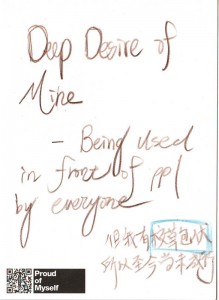 Deep Desire of
Mine
- Being used
in front of ppl
by everyone
但我有校草包袱
所以至今尚未施行
Proud
of
Myself